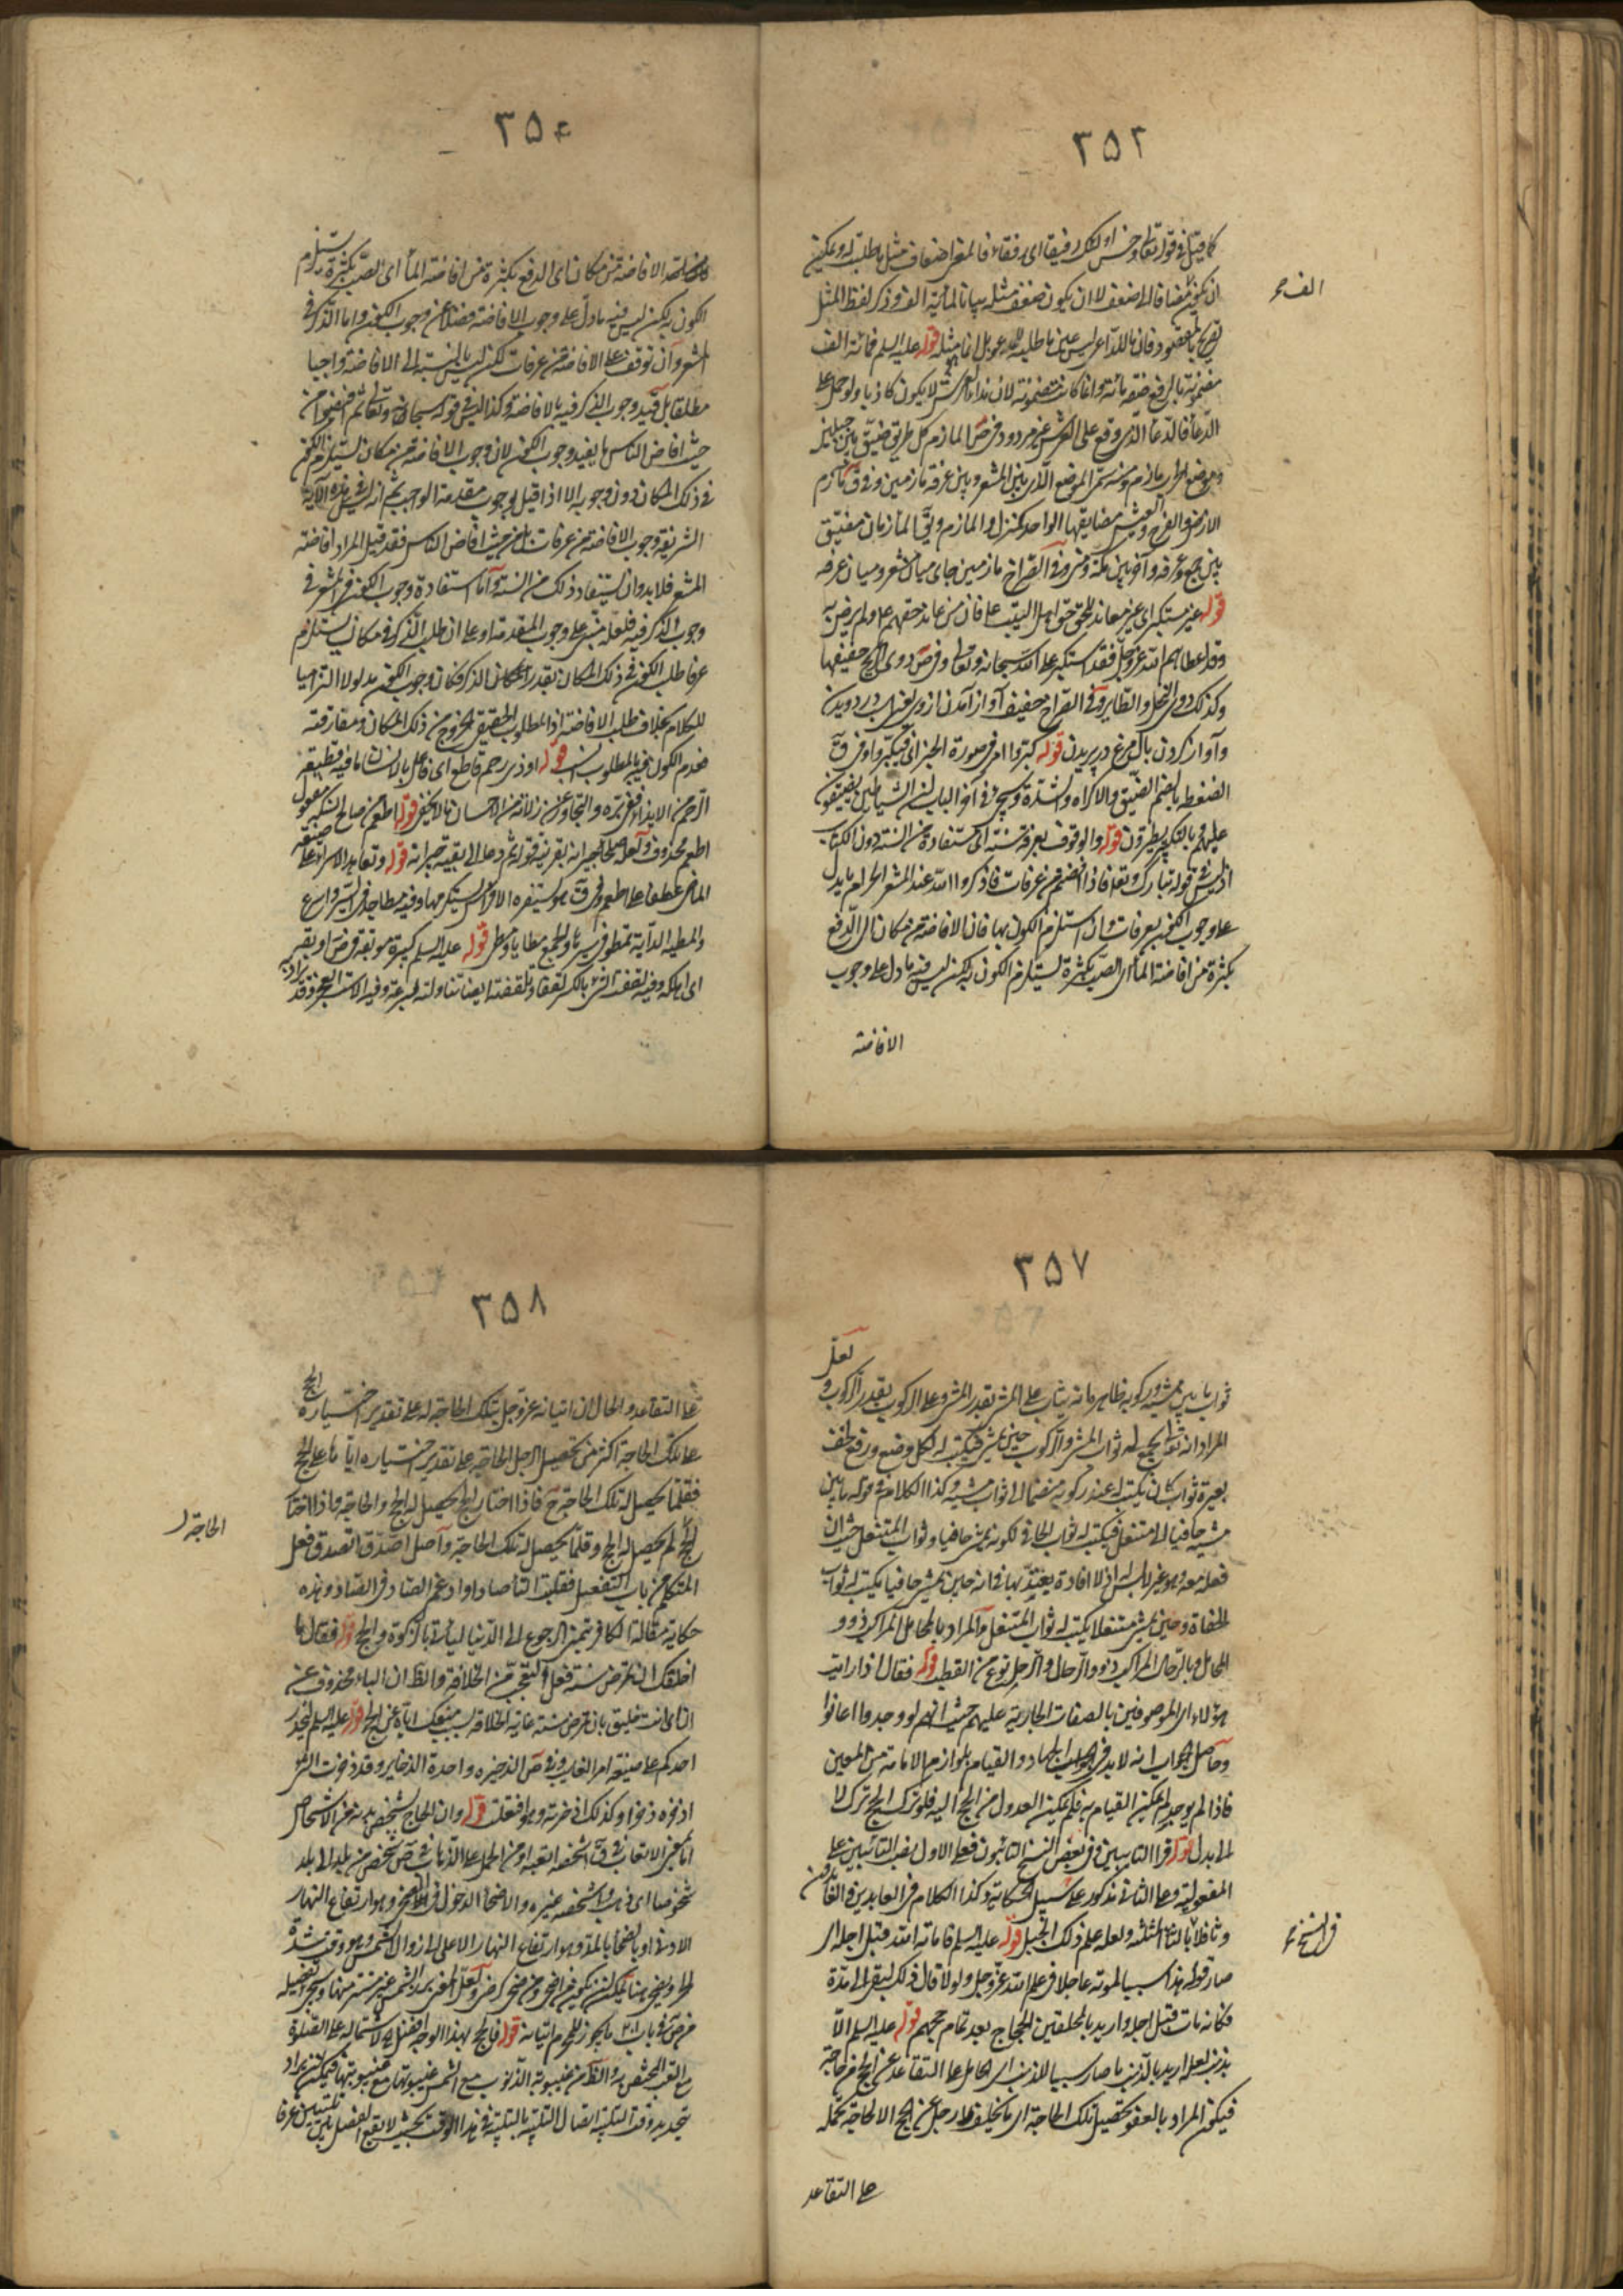 ٣٥٣
كما قيل في قوله تعالى وحسن اولئك رفيقا اى رفقاء فالمعنى اضعاف مثل ما طلب له ويمكن
ان يكون مضافا الى ضعف لا ان يكون ضعف مثله بيانا لمائة الف وذكر لفظ المثل
الف
بالمقصود فان ما للداعى ليس عين ما طلبه بل انما مثله قوله عليه السلم فمائة الف
مضمونة بالرفع صفة مائة وانما كانت مضمونة لان نداء العرش لا يكون كاذبا ولو حمل على
الدعاء فالدعاء الذى وقع على العرش غير مردود وفى ص المازم كل طريق ضيق بين جبلين
وموضع الحرب مازم ومنه سمى الموضع الذى بين المشعر وبين عرفة مازمين وفى ق مازم
الارض والفرج والعيش مضايقها الواحد كمنزل والمازم ويق المازمان مضيق
بين جمع وعرفة وآخر بين مكة ومنى وفى الصراح مازمين جاى ميان مشعر وميان عرفه
قوله غير مستكبر اى غير معاند للحق حق اهل البيت ع فان من عاند حقهم ع ولم يرض به
وقد اعطاهم الله عز وجل فقد استكبر على الله سبحانه وتعالى وفى ص دوى الريح حفيفها
وكذلك دوى النحل والطاير وفى الصراح حفيف آواز آمدن از وى
وآواز كردن بال مرغ در پريدن قوله كبروا امر فى صورة الخبر اى فيكبروا وفى ق
الضغطة بالضم الضيق والاكراه والشدة وسيجئ فى آخر الباب ان الشياطين يضيقون
عليهم بالتكبير يطرقون قوله والوقوف بعرفة سنة اى مستفادة من السنة دون الكتاب
اذ ليس فى قوله تبارك وتعالى فاذا افضتم من عرفات فاذكروا الله عند المشعر الحرام ما يدل
على وجوب الكون بعرفات وان استلزم الكون بها فان الافاضة من مكان اى الدفع
بكثرة من افاضة الماء اى الصب بكثرة يستلزم الكون به لكن ليس فيه ما دل على وجوب
الافاضة
٣٥٤
الافاضة من مكان اى الدفع بكثرة من افاضة الماء اى الصب بكثرة يستلزم
الكون به لكن ليس فيه ما دل على وجوب الافاضة فضلا عن وجوب الكون واما الذكر فى
المشعر وان توقف على الافاضة من عرفات لكن ليس بالنسبة الى الافاضة واجبا
مطلقا بل قيد وجوب الذكر فيه بالافاضة وكذا ليس فى قوله سبحانه وتعالى ثم افيضوا من
حيث افاض الناس ما يفيد وجوب الكون لان وجوب الافاضة من مكان يستلزم الكون
فى ذلك المكان دون وجوبه الا اذا قيل بوجوب مقدمة الواجب ثم انه ليس فى هذه الآية
الشريفة وجوب الافاضة من عرفات بل من حيث افاض الناس فقد قيل المراد افاضة
المشعر فلا بد وان يستفاد ذلك من السنة واما استفادة وجوب الكون فى المشعر فى
وجوب الذكر فيه فلعله مبنى على وجوب المقدمة او على ان طلب الذكر فى مكان يستلزم
عرفا طلب الكون فى ذلك المكان بقدر امكان الذكر فكان وجوب الكون مدلولا التزاميا
للكلام بخلاف طلب الافاضة اذ المطلوب الحقيقى الخروج من ذلك المكان ومفارقته
فعدم الكون فيه بالمطلوب انسب قوله او ذى رحم قاطع اى فاعل بالانسان ما فيه قطيعة
الرحم من الايذاء فعن بره والتجاوز عن زلاته من الاحسان ما لا يخفى قوله اطعم من صالح مفعول
اطعم محذوف ولعله جيرانه بقرينة قوله ثم دعا الى بقية جيرانه قوله وتعاهد الاسراع صيغة
الماضى عطفا على اطعم وفى ق
والمطية الدابة تمطو فى سيرها والجمع مطايا ومطى قوله عليه السلم كبيرة موبقة فى ص اوبقه
اى اهلكه وفيه لقفت الشئ بالكسر لقفا وتلقفته ايضا تناولته بسرعة
٣٥٧
لعل
ثواب ما بين مشيه وركوبه ظاهره انه يثاب على المشى بقدر المشى وعلى الركوب بقدر الركوب و
المراد انه ثواب المشى والركوب حين يمشى فيكتب له لكل وضع ورفع خف
بعيره ثواب كان يكتب له عند ركوبه منضما الى ثواب مشيه وكذا الكلام فى قوله ما بين
مشيه حافيا الى متنعل فيكتب له ثواب الحافى لكونه يمشى حافيا وثواب المتنعل حيث ان
نعله معه وهو غير لابس له اذ لا افادة يعتد بها فى انه حين يمشى حافيا يكتب له ثواب
الحفاة وحين يمشى متنعلا يكتب له ثواب المتنعل والمراد بالمحامل المراكب ذوو
المحامل وبالرحال المراكب ذوو الرحال والرحل نوع من القطب قوله فقال اذا رايت
هؤلاء اى الموصوفين بالصفات الجارية عليهم حيث انهم لو وجدوا اعانوا
وحاصل الجواب انه لا بد فى الجهاد والقيام بلوازم الامامة من المعين
فاذا لم يوجد لم يمكن القيام به فلم يمكن العدول من الحج اليه فلو ترك الحج ترك لا
الى بدل قوله اقرا التايبين فى بعض النسخ التائبون فعلى الاول نصب التائبين على
المفعولية وعلى الثانى مذكور على سبيل الحكاية وكذا الكلام فى العابدين والعابدون
فى النسخ
وثافلا بالثاء المثلثة ولعله علم ذلك الجبل قوله عليه السلم فاماته الله قبل اجله اى
صار قوله هذا سببا لموته عاجلا فى علم الله عز وجل ولولا قال ذلك لبقى الى مدة
فكانه مات قبل اجله واريد بالمحلقين الحجاج بعد تمام حجهم قوله عليه السلم الا
بذنب لعله اريد بالذنب ما صار سببا للذنب اى الحامل على التقاعد عن الحج من حاجة
فيكون المراد بالعفو تحصيل تلك الحاجة اى ما تخلف رجل عن الحج الا لحاجة تحمله
على التقاعد
٣٥٨
على التقاعد والحال ان اتيانه عز وجل بتلك الحاجة له على تقدير اختياره الحج
على تلك الحاجة اكثر من تحصيل الرجل الحاجة على تقدير اختياره اياها على الحج
فقلما يحصل له تلك الحاجة ح فاذا اختار الحج يحصل له الحج والحاجة واذا اختار
الحاجة
لم يحصل له الحج وقلما يحصل له تلك الحاجة واصل اصدق اتصدق فعل
المتكلم من باب التفعل فقلبت التاء صادا وادغم الصاد فى الصاد وهذه
حكاية مقالة الكافر تمنى الرجوع الى الدنيا ليأتى بالزكوة والحج قوله فقال ما
اخلقك ان تمرض سنة فعل التعجب من الخلاقة والظ ان الباء محذوف عن
ان اى انت خليق بان تمرض سنة غاية الخلاقة بسبب منعك اياه عن الحج قوله عليه السلم ليحذر
احدكم على صيغة امر الغايب وفى ص الذخيرة واحدة الذخاير وقد ذخرت الشئ
اذخره ذخرا وكذلك اذخرته وهو افتعلت قوله وان الحاج يشخص بدنه من الاشخاص
اما بمعنى الاتعاب فى ق اشخصه اتعبه او من الحمل على الذهاب فى ص شخص من بلد الى بلد
شخوصا اى ذهب واشخصه غيره والاضحاء الدخول فى الضحى وهو ارتفاع النهار
الادنى او بالضحاء بالمد وهو ارتفاع النهار الاعلى الى زوال الشمس وهو وقت شدة
الحر
فى باب ما يجوز للمحرم اتيانه قوله فان الحج بهذا الوجه افضل لاشتماله على الصلوة
مع التعب المختص به والظ من غيبوبة الذنوب مع الشمس غيبوبتها مع غيبوبتها فيمكن ان يراد
بتجديد وقت التلبية اتصال التلبية بالتلبية فى هذا الوقت بحيث لا يقع الفصل بين التلبيتين عرفا